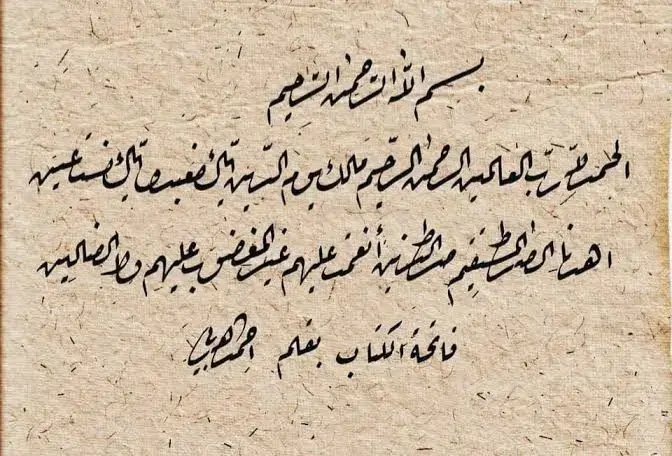 بسم الله الرحمن الرحيم
الحمد لله ربّ العالمين الرحمن الرحيم مالك يوم الدين إياك نعبد وإياك نستعين
اهدنا الصراط المستقيم صراط الذين أنعمت عليهم غير المغضوب عليهم ولا الضالين
فاتحة الكتاب بقلم احمد